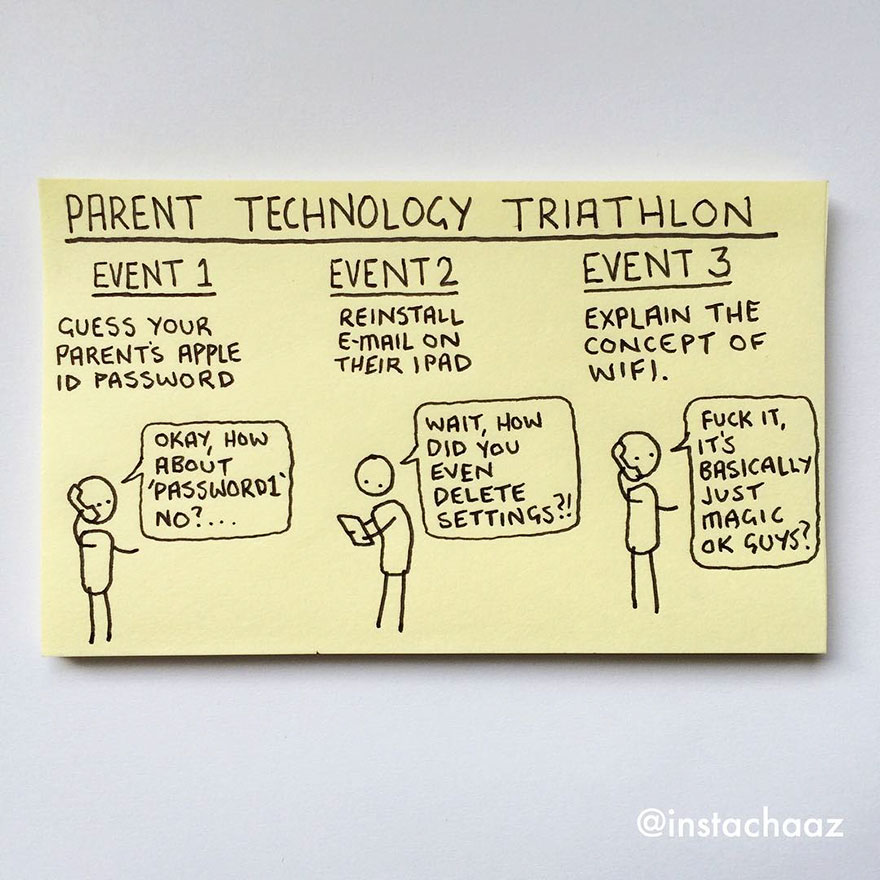 PARENT TECHNOLOGY TRIATHLON
EVENT 1
GUESS YOUR
PARENT'S APPLE
ID PASSWORD
OKAY, HOW
ABOUT
'PASSWORD1'
NO?...
EVENT 2
REINSTALL
E-MAIL ON
THEIR IPAD
WAIT, HOW
DID YOU
EVEN
DELETE
SETTINGS?!
EVENT 3
EXPLAIN THE
CONCEPT OF
WIFI.
FUCK IT,
IT'S
BASICALLY
JUST
MAGIC
OK GUYS?
@instachaaz